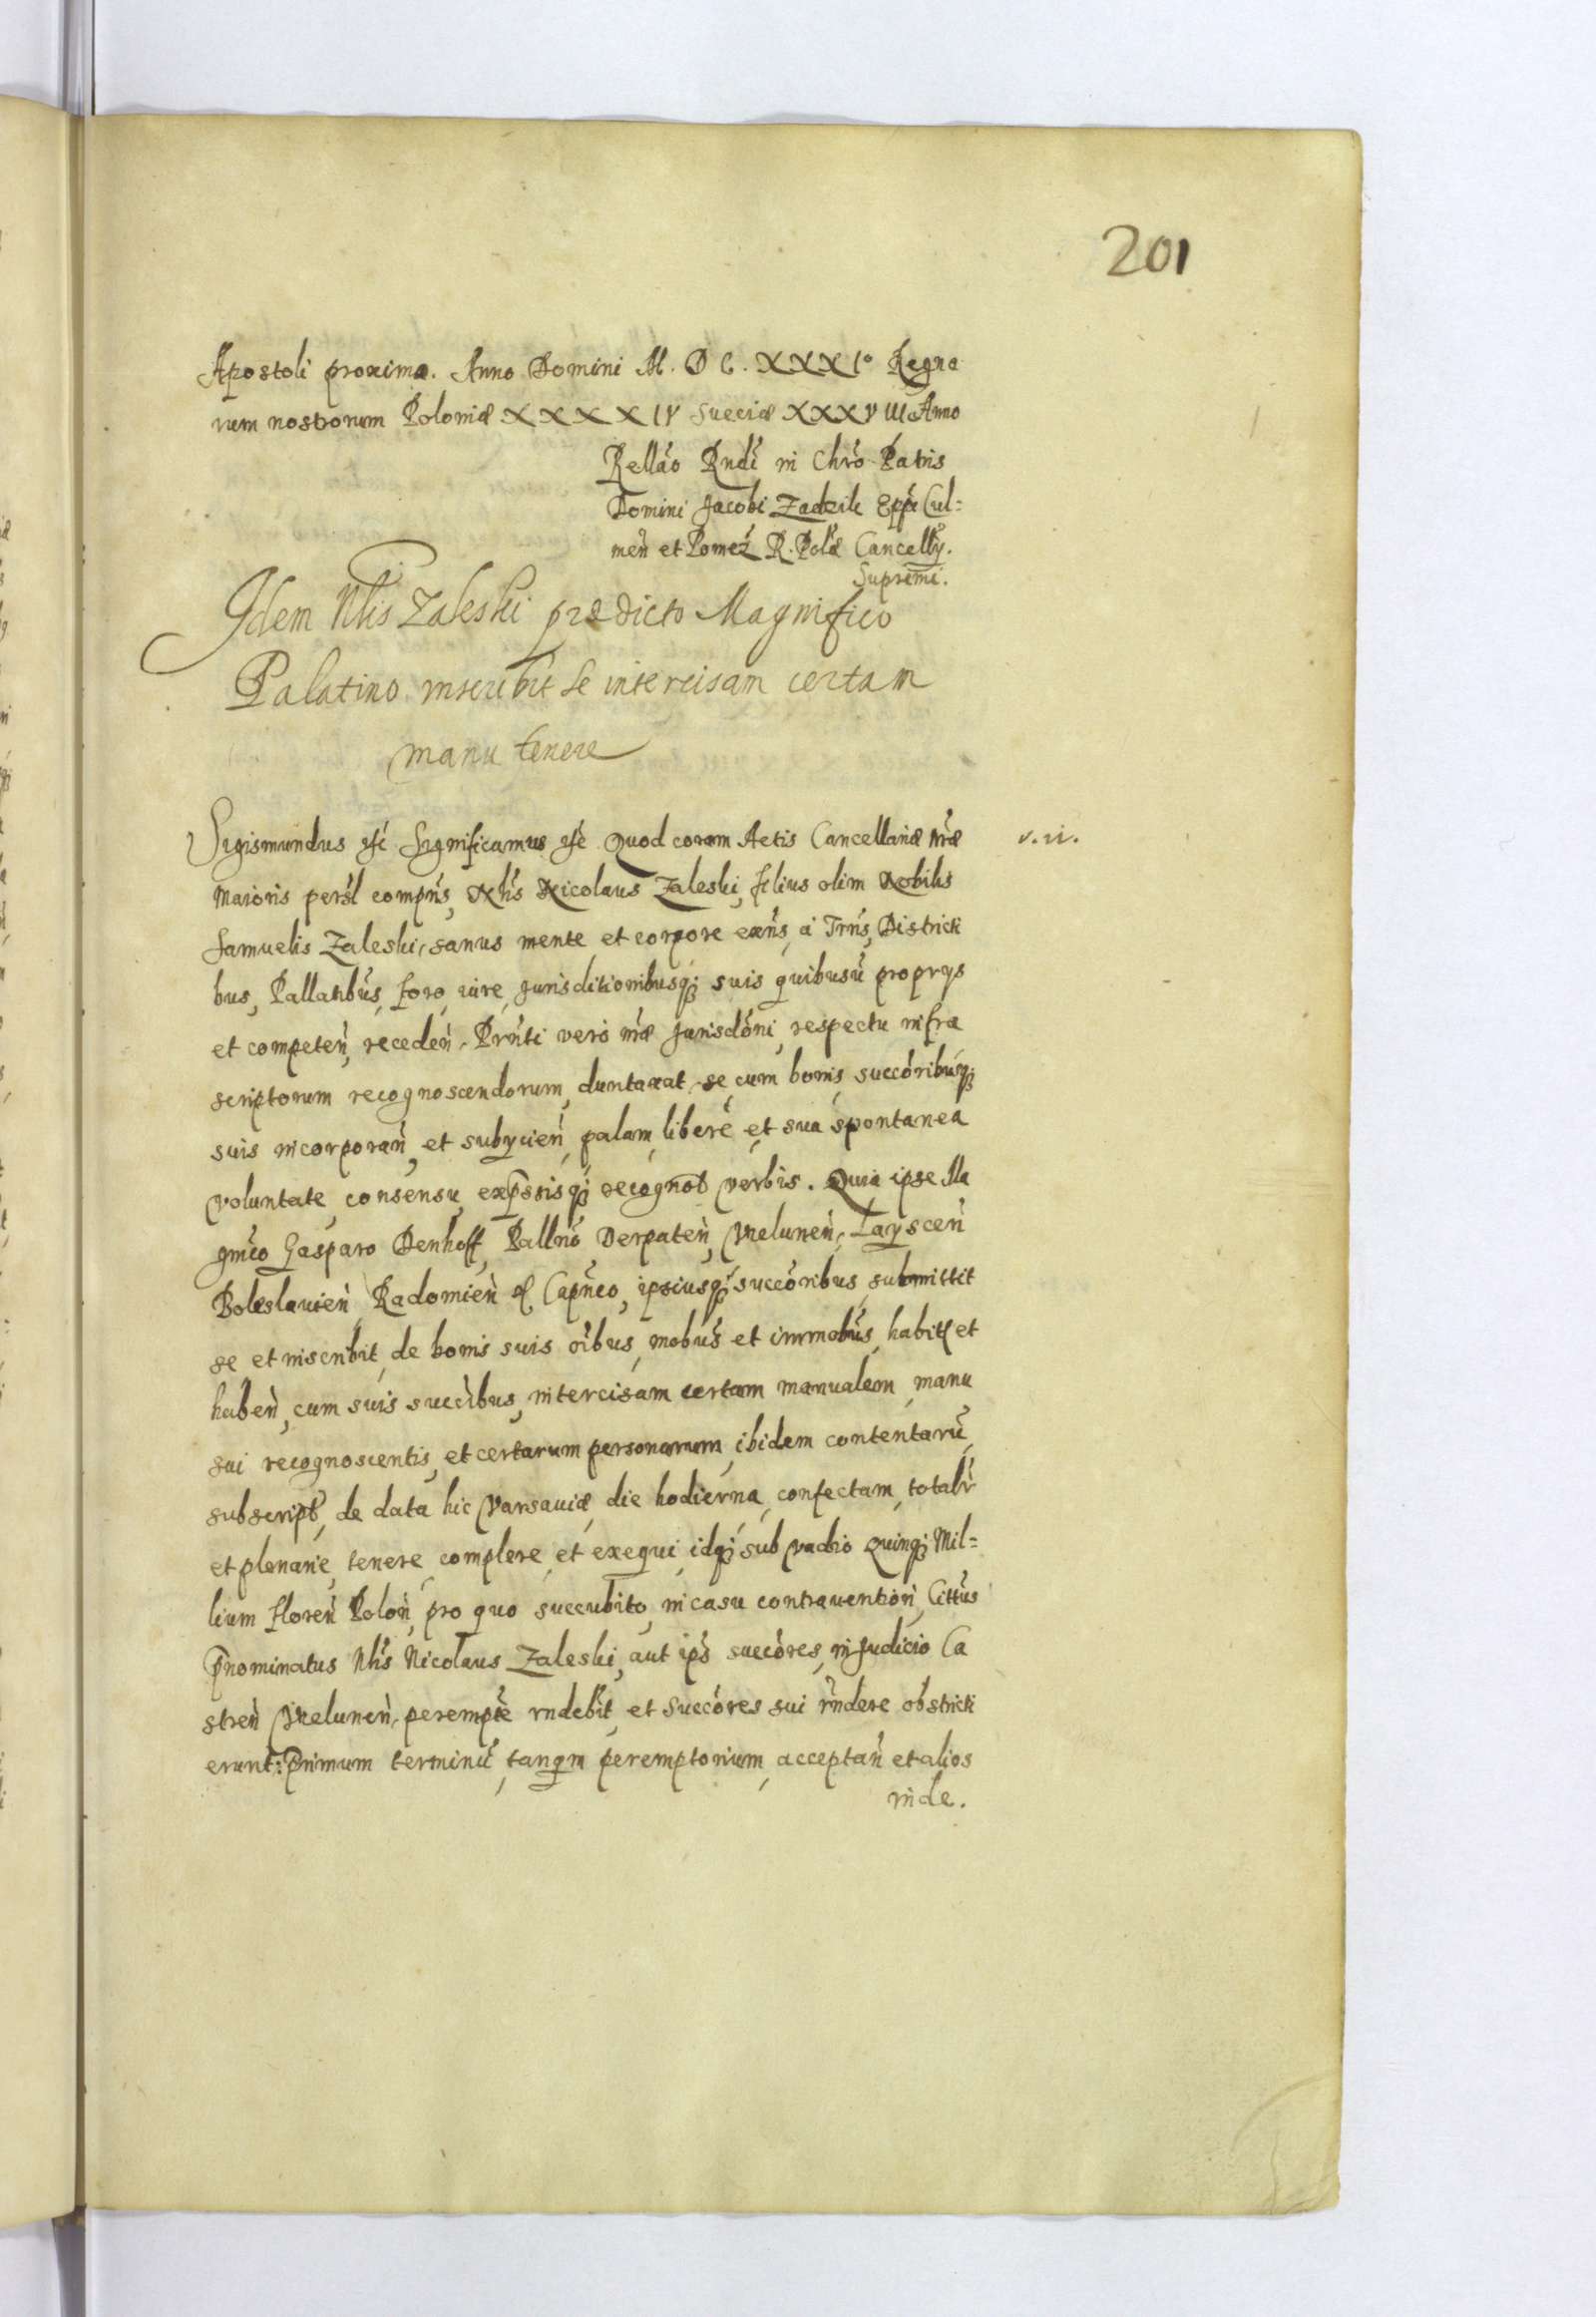 201
Apostoli proxima. Anno Domini M. D C. XXXI° Regno
rum nostrorum Poloniæ XXXXIV Sueciæ XXXVIII Anno
Rellão Rndi in Chro Patris
Domini Jacobi Zadzik Eppi Cul=
meñ et Pomez R. Polæ Cancellrÿ.
Supremi.
Idem Nlis Zaleski prædicto Magnifico
Palatino inscribit se intercisam certam
manu tenere
Sigismundus etc Significamus etc Quod coram Actis Cancellariæ nræ v. ri.
Maioris persl comprñs, Nlis Nicolaus Zaleski, filius olim Nobilis
Samuelis Zaleski, sanus mente et corpore exñs, a Trrijs, Districti
bus, Pallatibus, foro, iure, Jurisditionibusq; suis quibusũ proprÿs
et competeñ, recedeñ, Prñti vero nræ Jurisdõni, respectu infra
scriptorum recognoscendorum, duntaxat, se, cum bonis, succõribusq;
suis incorporañ, et subÿcieñ, palam, liberè, et sua spontanea
voluntate, consensu, expssisq; recognot verbis. Quia ipse Ma
gnico Gasparo Denhoff, Pallno Derpateñ, Vieluneñ, Laysceñ
Boleslavieñ Radomieñ etc Capneo, ipsiusq; succõribus, submittit
se et inscribit, de bonis suis oibus, mobus et immobus, habitis et
habeñ, cum suis succibus, intercisam certam manualem, manu
sui recognoscentis, et certarum personarum, ibidem contentarũ,
subscript, de data hic Varsaviæ die hodierna, confectam, totalr
et plenarie, tenere complere, et exequi, idq; sub vadio Quinq; Mil=
lium floreñ Poloñ, pro quo succubito, in casu contraventioñ, Cittus
Pnominatus Nlis Nicolaus Zaleski, aut ips succores, in Judicio Ca
streñ Vieluneñ, perempte rndebit, et Succores sui rñdere obstricti
erunt: Primum terminũ, tanqm peremptorium, acceptañ et alios
inde.